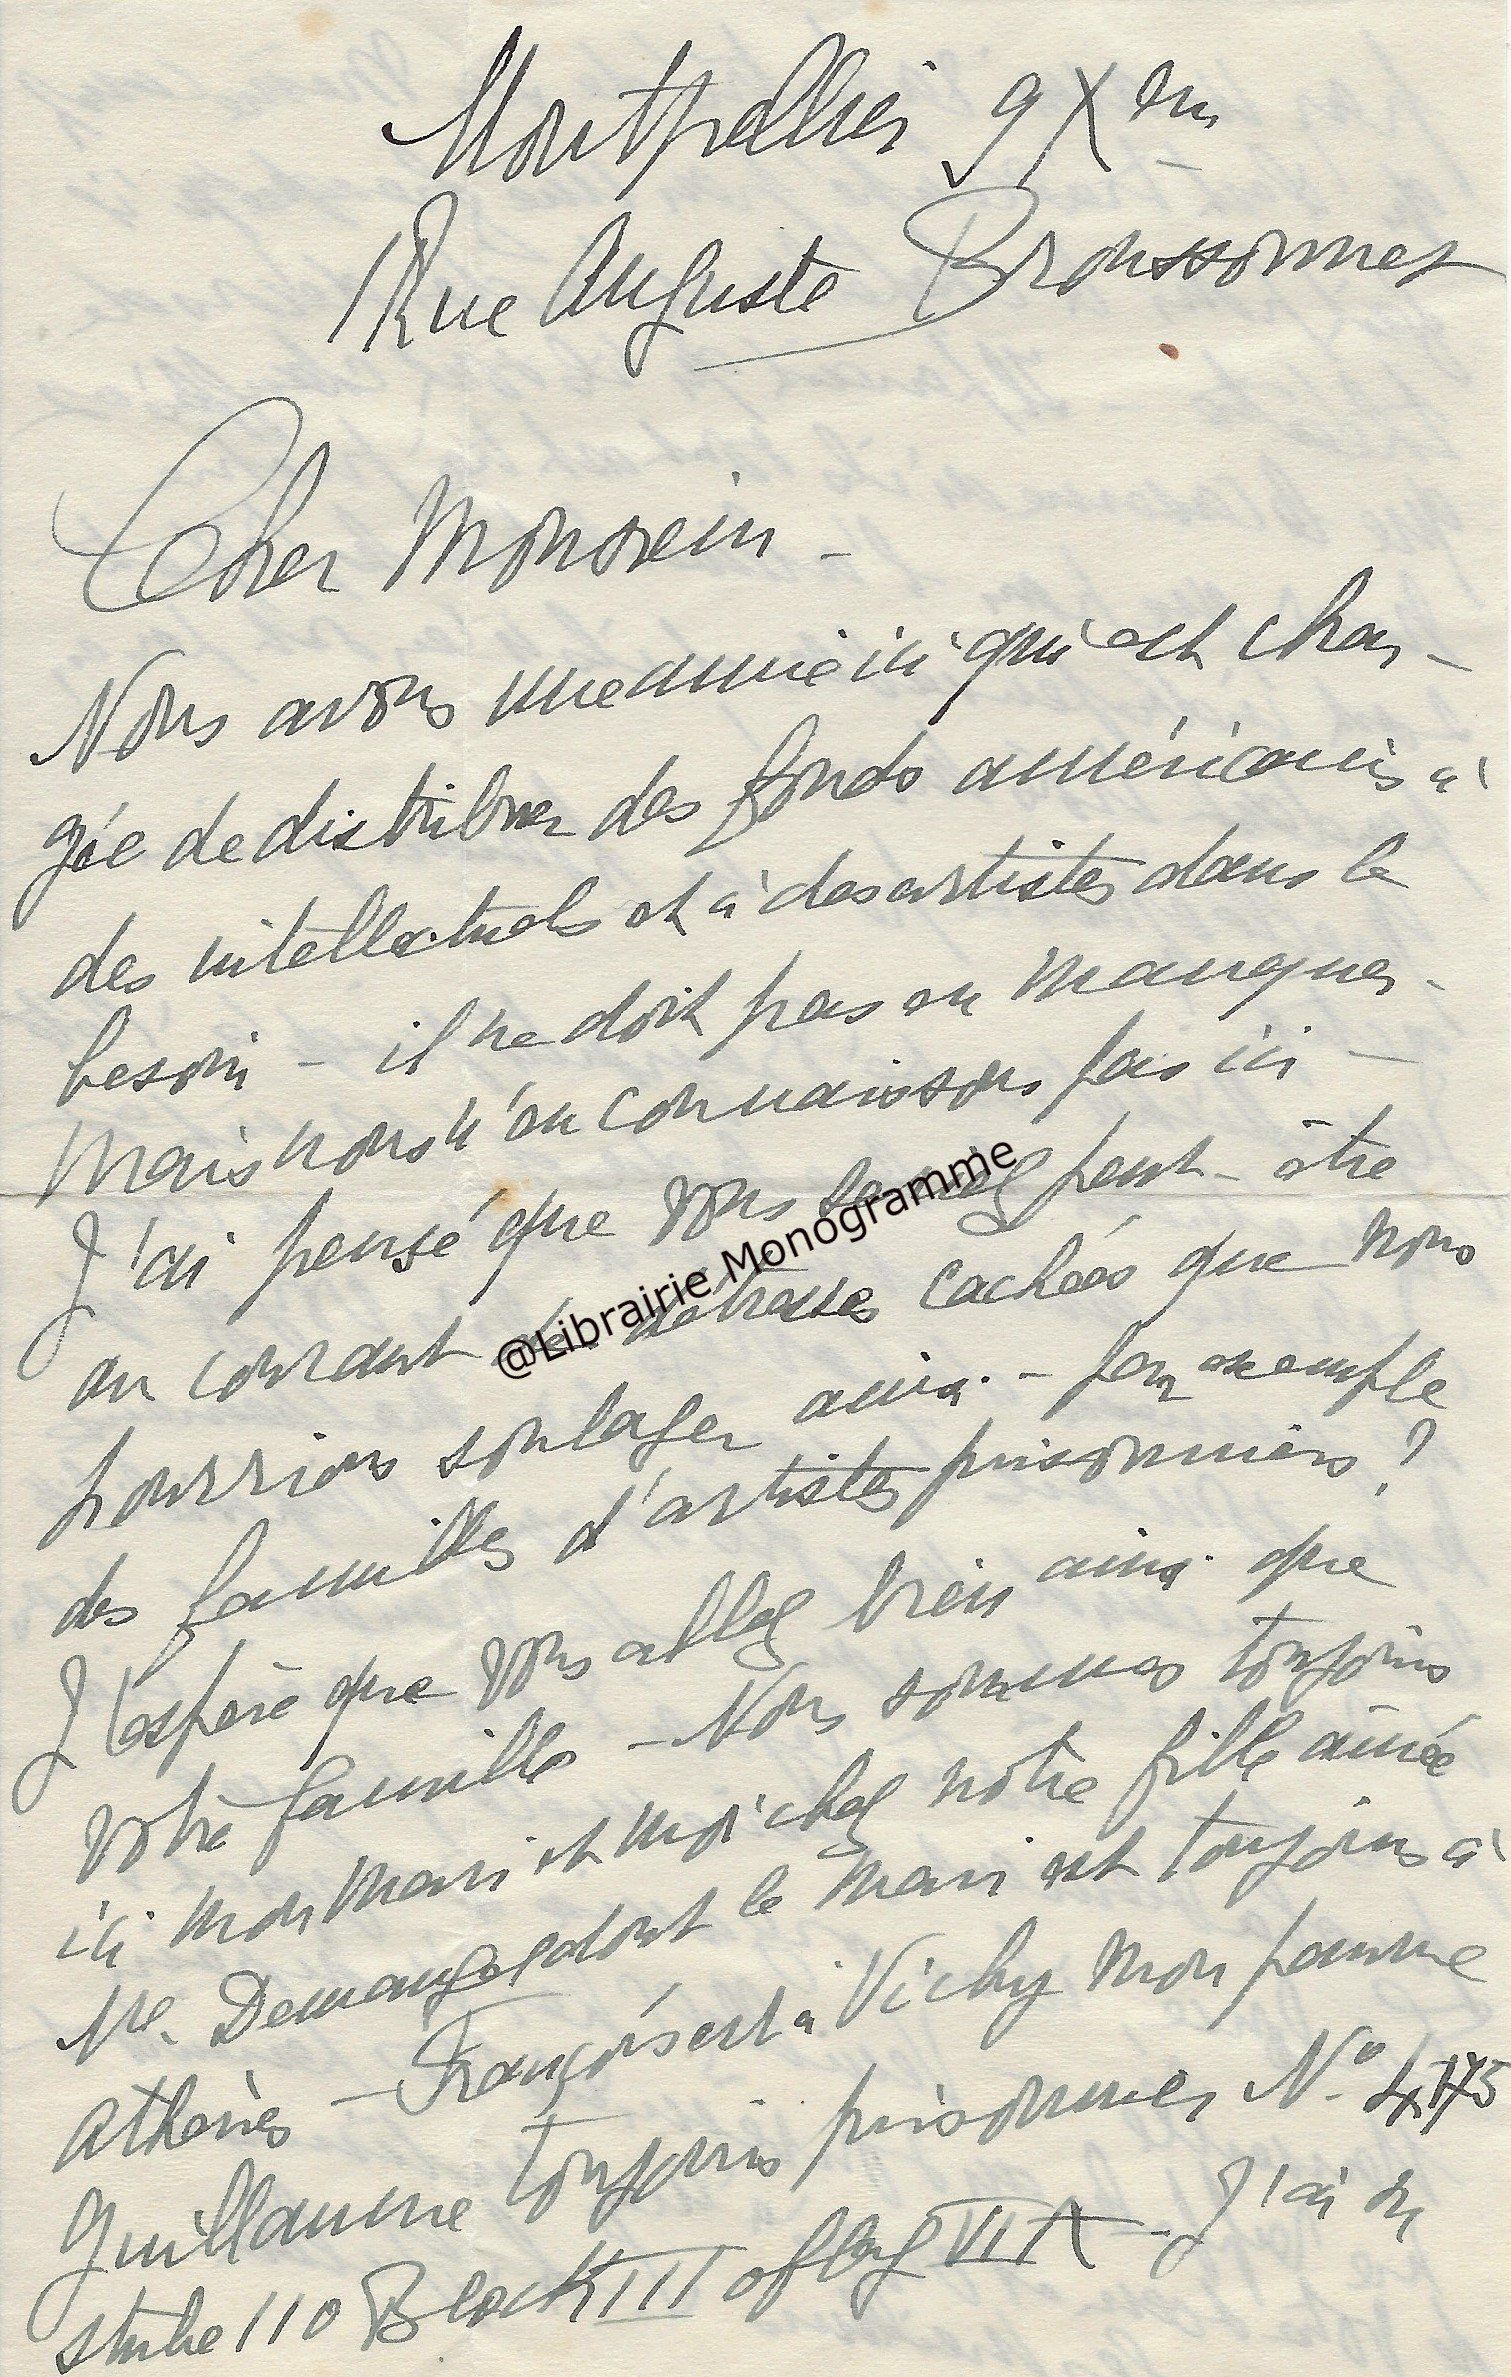 Montpellier 9 Xbre
1 Rue Auguste Broussonnet
Cher Monsieur –
Nous avons une amie ici qui est char-
gée de distribuer des fonds américains à
des intellectuels et à des artistes dans le
besoin – il ne doit pas en manquer –
mais nous n'en connaissons pas ici –
J'ai pensé que vous seriez peut-être
au courant de détresses cachées que nous
pourrions soulager ainsi – par exemple
des familles d'artistes prisonniers ?
J'espère que vous allez bien ainsi que
votre famille – Nous sommes toujours
ici mon mari et moi chez notre fille aînée
Me. Demangel dont le mari est toujours à
Athènes – François est à Vichy mon pauvre
Guillaume toujours prisonnier No 4175
stube 110 Block III oflag VII A – J'ai du
@Librairie Monogramme